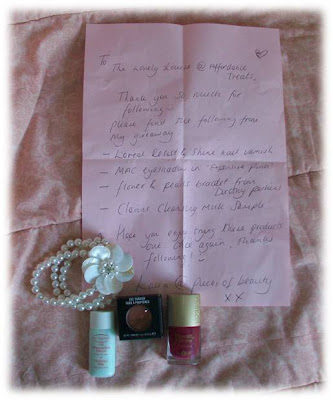 To
The lovely Louise @ Affordable
Treats,
Thank you so much for
following.
please find the following from
my giveaway
- Loreal Resist & Shine nail varnish
- MAC eyeshadow in
- flower & pearls bracelet from
Dorothy perkins
- Clarins Cleansing Milk Sample
Hope you enjoy trying these products
once again, thanks
following! :)
@ pieces of beauty
xx